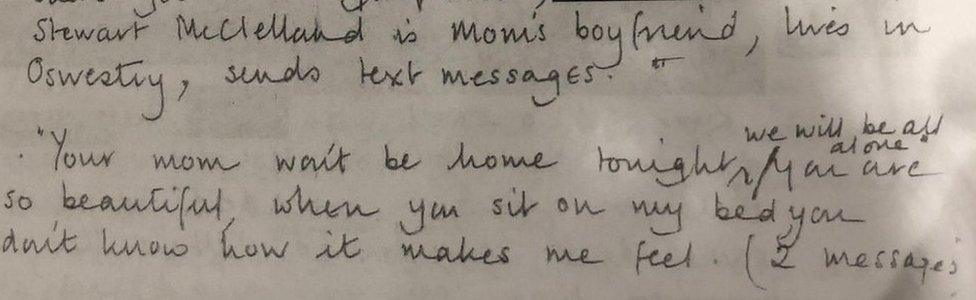 Stewart McClelland is Mom's boyfriend, lives in
Oswestry, sends text messages."
we will be all
alone"
"Your mom won't be home tonight, / You are
so beautiful, when you sit on my bed you
don't know how it makes me feel. (2 messages